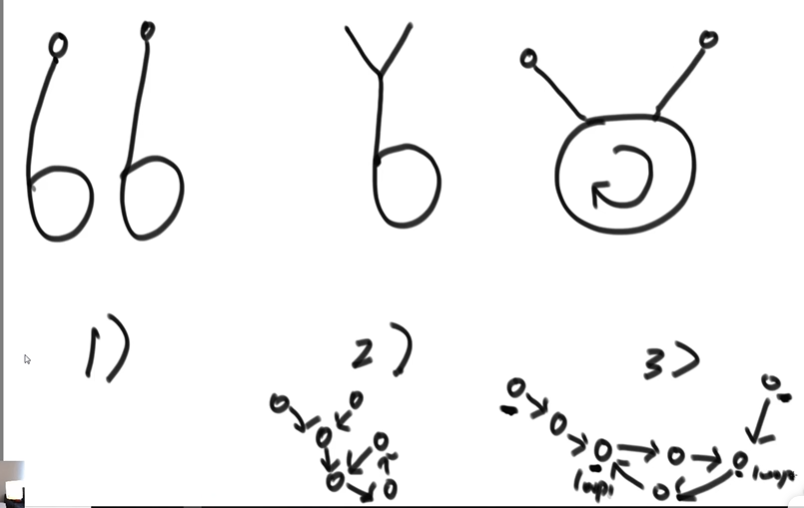 1) 2) 3)
loop1 loop2